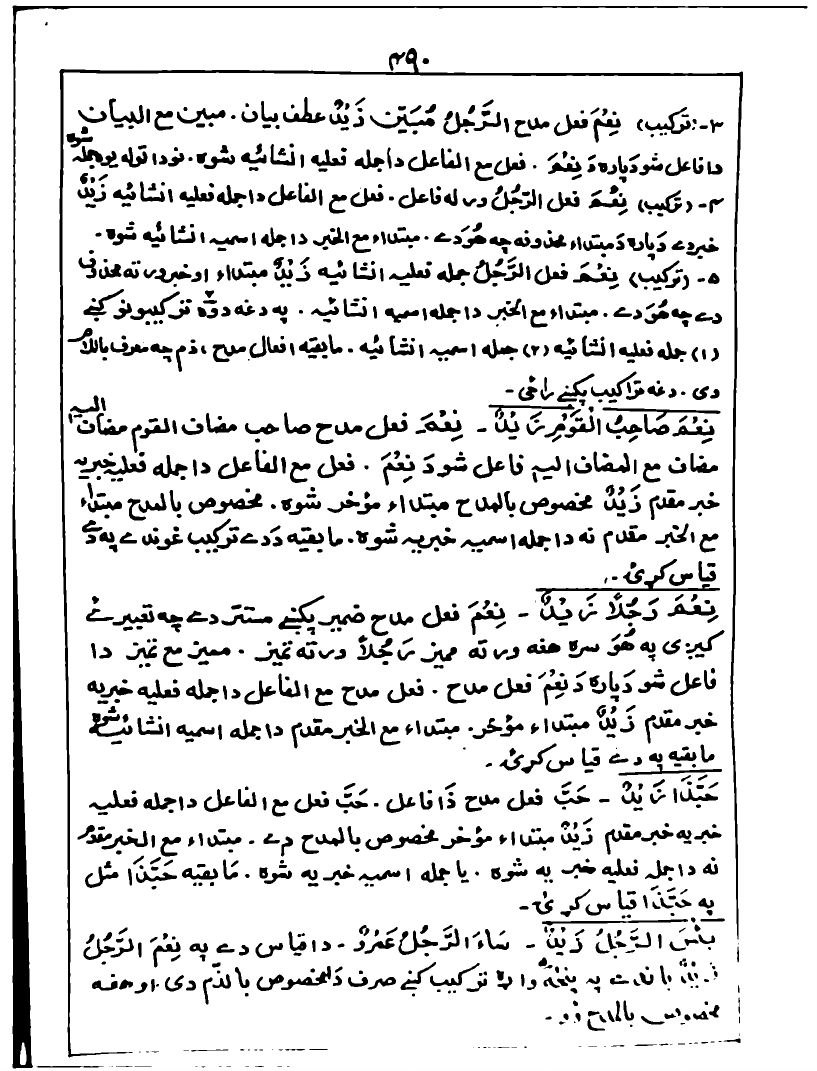 ۴۹۰
۳-: (ترکیب) نِعْمَ فعل مدح الرَّجُلُ مُبَيَّن زَيْدٌ عطف بیان. مبین مع البیان
دا فاعل شو دَپاره دَ نِعْمَ. فعل مع الفاعل دا جمله فعلیه انشائیه شوه. نو دا قوله یو جمله شوه
۴-(ترکیب) نِعْمَ فعل الرَّجُلُ ورله فاعل. فعل مع الفاعل دا جمله فعلیه انشائیه زَيْدٌ
خبر دے دَپاره دَ مبتداء محذوفه چه هُوَ دے. مبتداء مع الخبر دا جمله اسمیه انشائیه شوه.
۵-(ترکیب) نِعْمَ فعل الرَّجُلُ جمله فعلیه انشائیه زَيْدٌ مبتداء او خبر ورته محذوف
دے چه هُوَ دے. مبتداء مع الخبر دا جمله اسمیه انشائیه. په دغه دوه ترکیبونو کښے
(۱) جمله فعلیه انشائیه (۲) جمله اسمیه انشائیه. مابقیه افعال مدح، ذم چه معرف باللام
دی. دغه تراکیب پکښے راځی-
نِعْمَ صَاحِبُ الْقَوْمِ زَيْدٌ- نِعْمَ فعل مدح صاحب مضاف القوم مضاف الیه
مضاف مع المضاف الیه فاعل شو دَ نِعْمَ. فعل مع الفاعل دا جمله فعلیه خبریه
خبر مقدم زَيْدٌ مخصوص بالمدح مبتداء مؤخر شوه. مخصوص بالمدح مبتداء
مع الخبر مقدم نه دا جمله اسمیه خبریه شوه. مابقیه دَدے ترکیب غوندے په دے
قیاس کړئ-
نِعْمَ رَجُلًا زَيْدٌ- نِعْمَ فعل مدح ضمیر پکښے مستتر دے چه تعبیر ئے
کیږی په هُوَ سره هغه ورته ممیز رَجُلًا ورته تمیز. ممیز مع تمیز دا
فاعل شو دَپاره دَ نِعْمَ فعل مدح. فعل مدح مع الفاعل دا جمله فعلیه خبریه
خبر مقدم زَيْدٌ مبتداء مؤخر. مبتداء مع الخبر مقدم دا جمله اسمیه انشائیه شوه
مابقیه په دے قیاس کړئ-
حَبَّذَا زَيْدٌ- حَبَّ فعل مدح ذَا فاعل. حَبَّ فعل مع الفاعل دا جمله فعلیه
خبریه خبر مقدم زَيْدٌ مبتداء مؤخر مخصوص بالمدح دے. مبتداء مع الخبر مقدم
نه دا جمله فعلیه خبریه شوه. یا جمله اسمیه خبریه شوه. مَابقیه حَبَّذَا مثل
په حَبَّذَا قیاس کړئ-
بِئْسَ الرَّجُلُ زَيْدٌ- سَاءَ الرَّجُلُ عَمْرٌو- دا قیاس دے په نِعْمَ الرَّجُلُ
زَيْدٌ باندے په پنځه واړه ترکیب کښے صرف دَ المخصوص بالذّم دی او هغه
مخصوص بالمدح وُو-